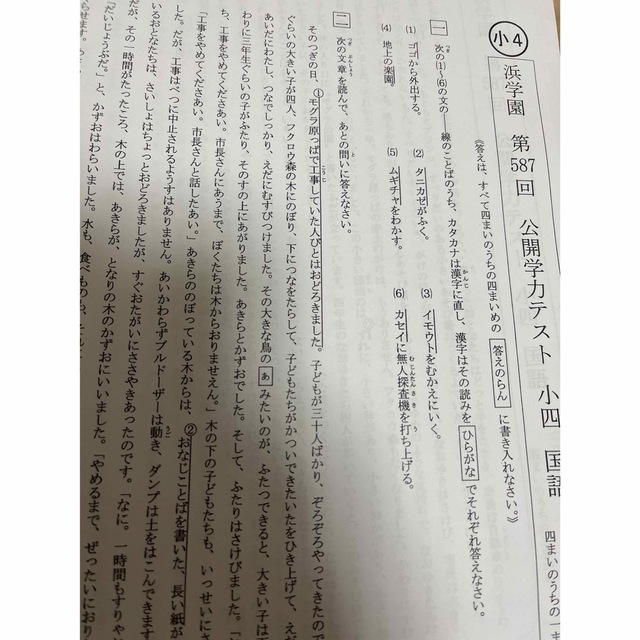 小4
浜学園 第587回 公開学力テスト 小四 国語
四まいのうちの一
《答えは、すべて四まいのうちの四まいめの 答えのらん に書き入れなさい。》
一 次の(1)~(6)の文の――線のことばのうち、カタカナは漢字に直し、漢字はその読みを ひらがな でそれぞれ答えなさい。
(1) ゴゴから外出する。
(2) タニカゼがふく。
(3) イモウトをむかえにいく。
(4) 地上の楽園
(5) ムギチャをわかす。
(6) カセイに無人探査機を打ち上げる。
二 次の文章を読んで、あとの問いに答えなさい。
そのつぎの日、①モグラ原っぱで工事していた人びとはおどろきました。子どもが三十人ばかり、ぞろぞろやってきたので
ぐらいの大きい子が四人、フクロウ森の木にのぼり、下につなをたらして、子どもたちがかついできたいたをひき上げて、えだ
あいだにわたし、つなでしっかり、えだにむすびつけました。その大きな鳥の あ みたいのが、ふたつできると、大きい子が
わりに三年生ぐらいの子がふたり、そのすの上にあがりました。あきらとかずおでした。そして、ふたりはさけびました。
「工事をやめてくださあい。市長さんと話したあい。」あきらののぼっている木からは、②おなじことばを書いた、長い紙が
ち、工事をやめてくださあい。市長さんにあうまで、ぼくたちは木からおりませえん。」木の下の子どもたちも、いっせいに
した。だが、工事はべつに中止されるようすはありません。あいかわらずブルドーザーは動き、ダンプは土をはこんできます
いるおとなたちは、さいしょはちょっとおどろきましたが、すぐおたがいにささやきあったのです。「なに。一時間もすりゃ
だが、その一時間がたったころ、木の上では、あきらが、となりの木のかずおにいいました。「やめるまで、ぜったいにおり
「だいじょうぶだ。」と、かずおはわらいました。水も、食べものも、